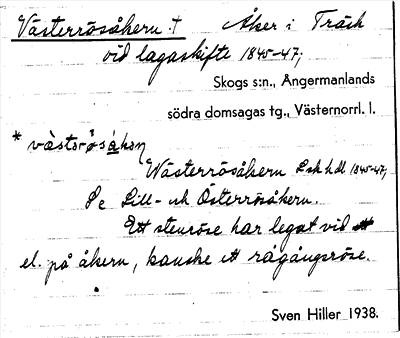 Västerrösåkern † Åker i Träsk
vid lagaskifte 1845-47;
Skogs s:n., Ångermanlands
södra domsagas tg., Västernorrl. l.
* västərø̀såkən
Wästerrösåkern Lsk hdl 1845-47;
Se Lill- och Österrösåkern.
Ett stenröse har legat vid
el. på åkern, kanske ett rågångsröse.
Sven Hiller 1938.